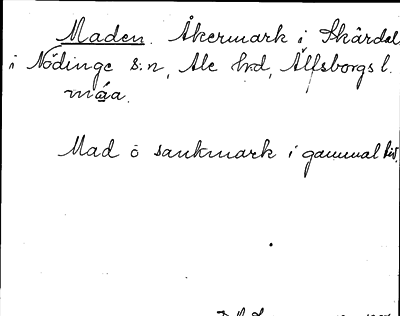 Maden. Åkermark i Skårdal
i Nödinge s:n, Ale hrd, Älfsborgs l.
måa.
Mad o sankmark i gammal tid.